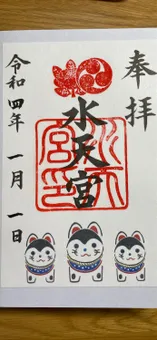 奉拝
水天宮
令和四年 一月 一日